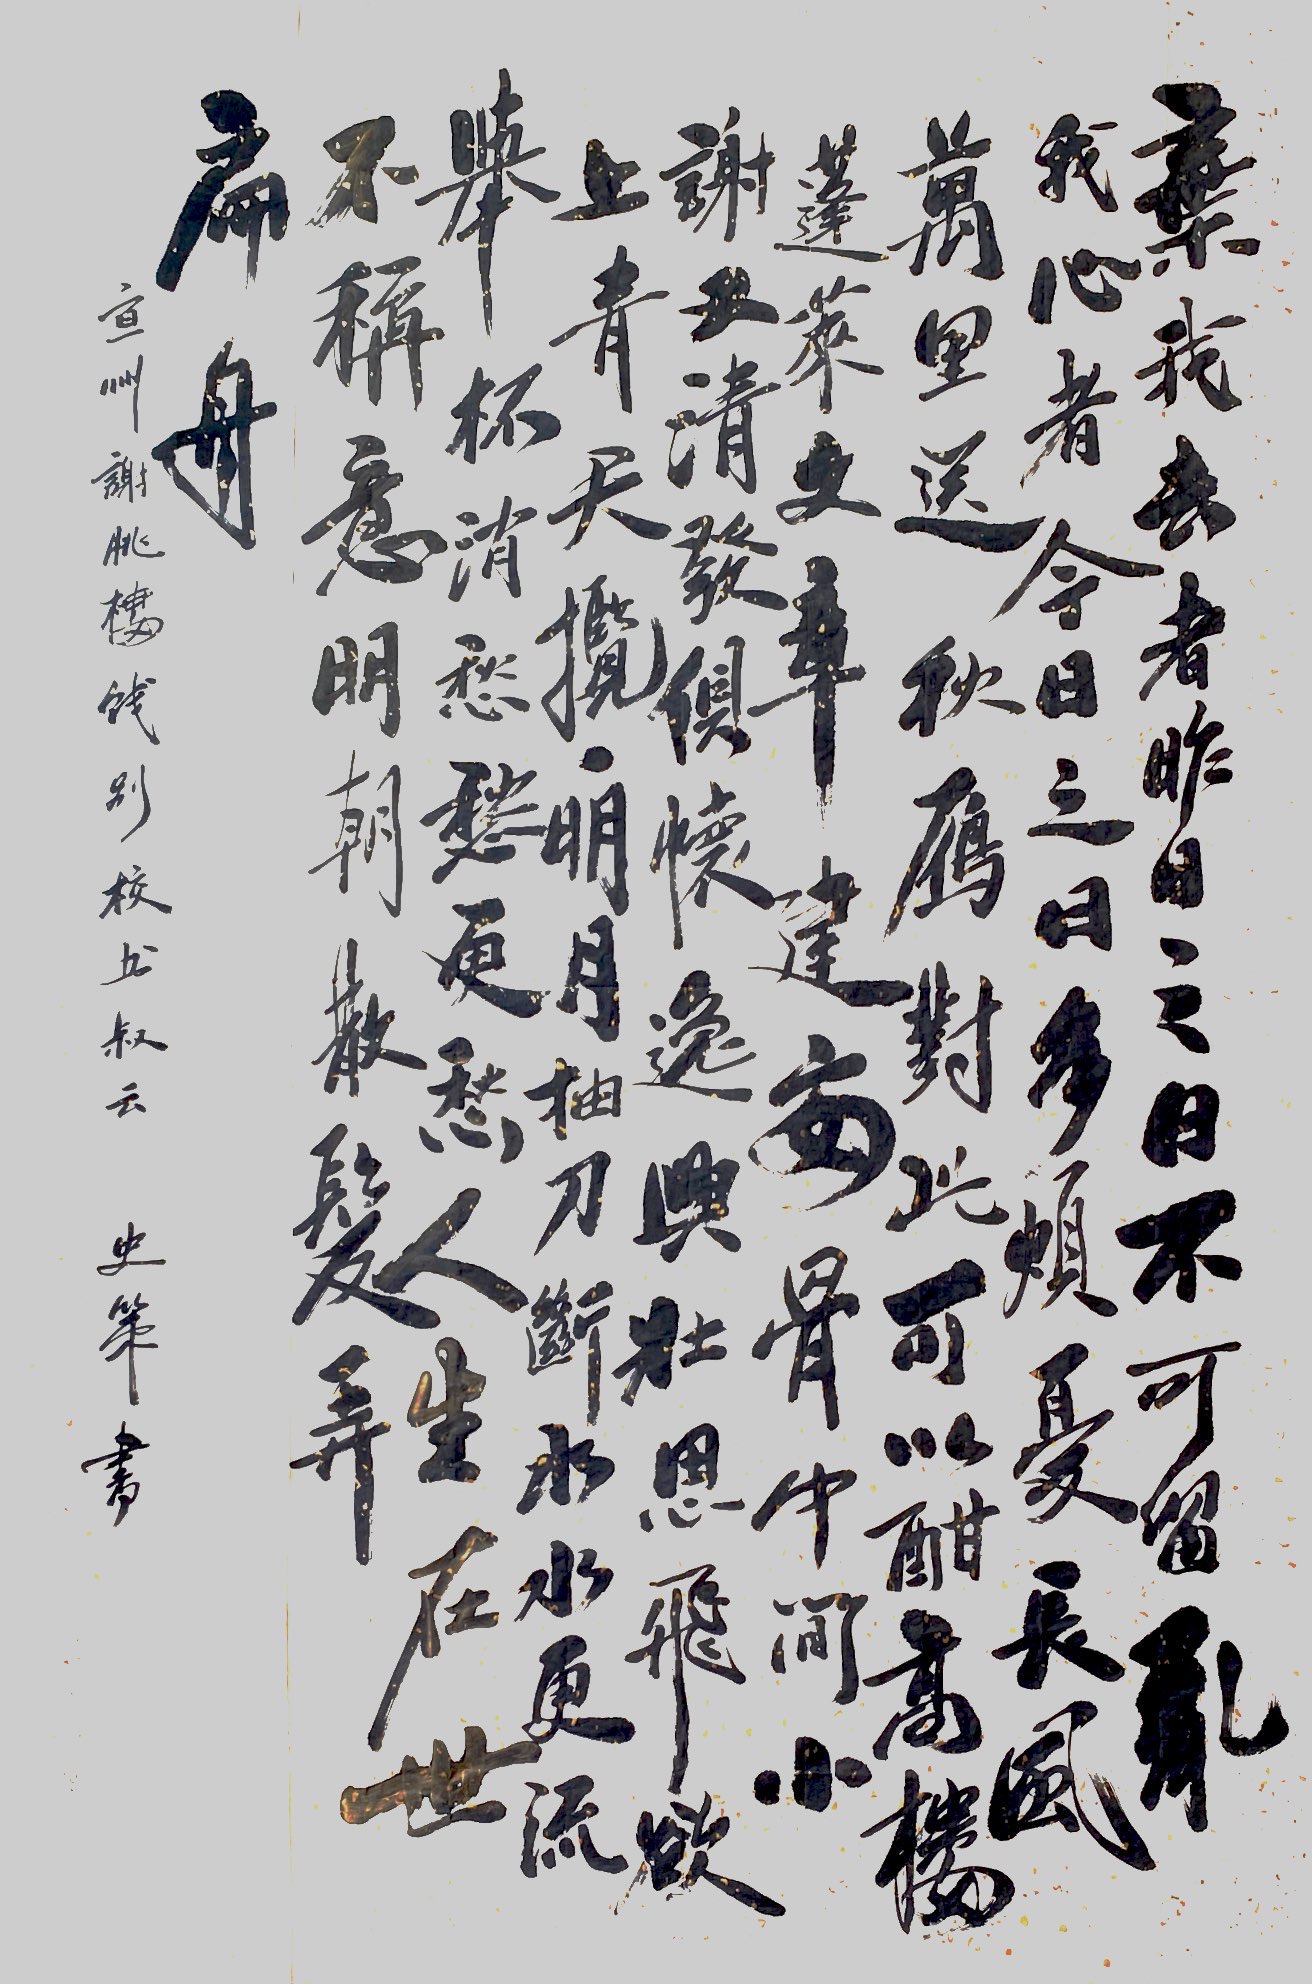 棄我去者昨日之日不可留亂
我心者今日之日多煩憂長風
萬里送秋鴈對此可以酣高樓
蓬萊文章建安骨中間小
謝又清發俱懷逸興壯思飛欲
上青天攬明月抽刀斷水水更流
舉杯消愁愁更愁人生在世
不稱意明朝散髮弄
扁舟
宣州謝朓樓饯别校书叔云 史策書